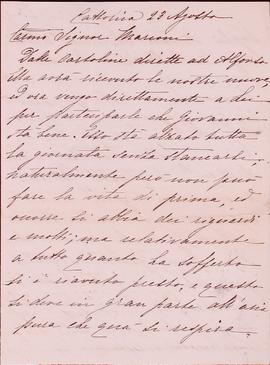 Cattolica 23 Agosto
Signor Marconi
Dalle Cartoline dirette ad Alfonso
Ella avrà ricevuto le nostre nuove,
ed ora vengo direttamente a lei
per parteciparle che Giovanni
sta bene. Esso sta alzato tutta
la giornata senza stancarsi.
naturalmente però non può
fare la vita di prima, ed
occorre si abbia dei riguardi
e molti; ma relativamente
a tutto quanto ha sofferto
si è riavuto presto, e questo
si deve in gran parte all'aria
pura che quà si respira.